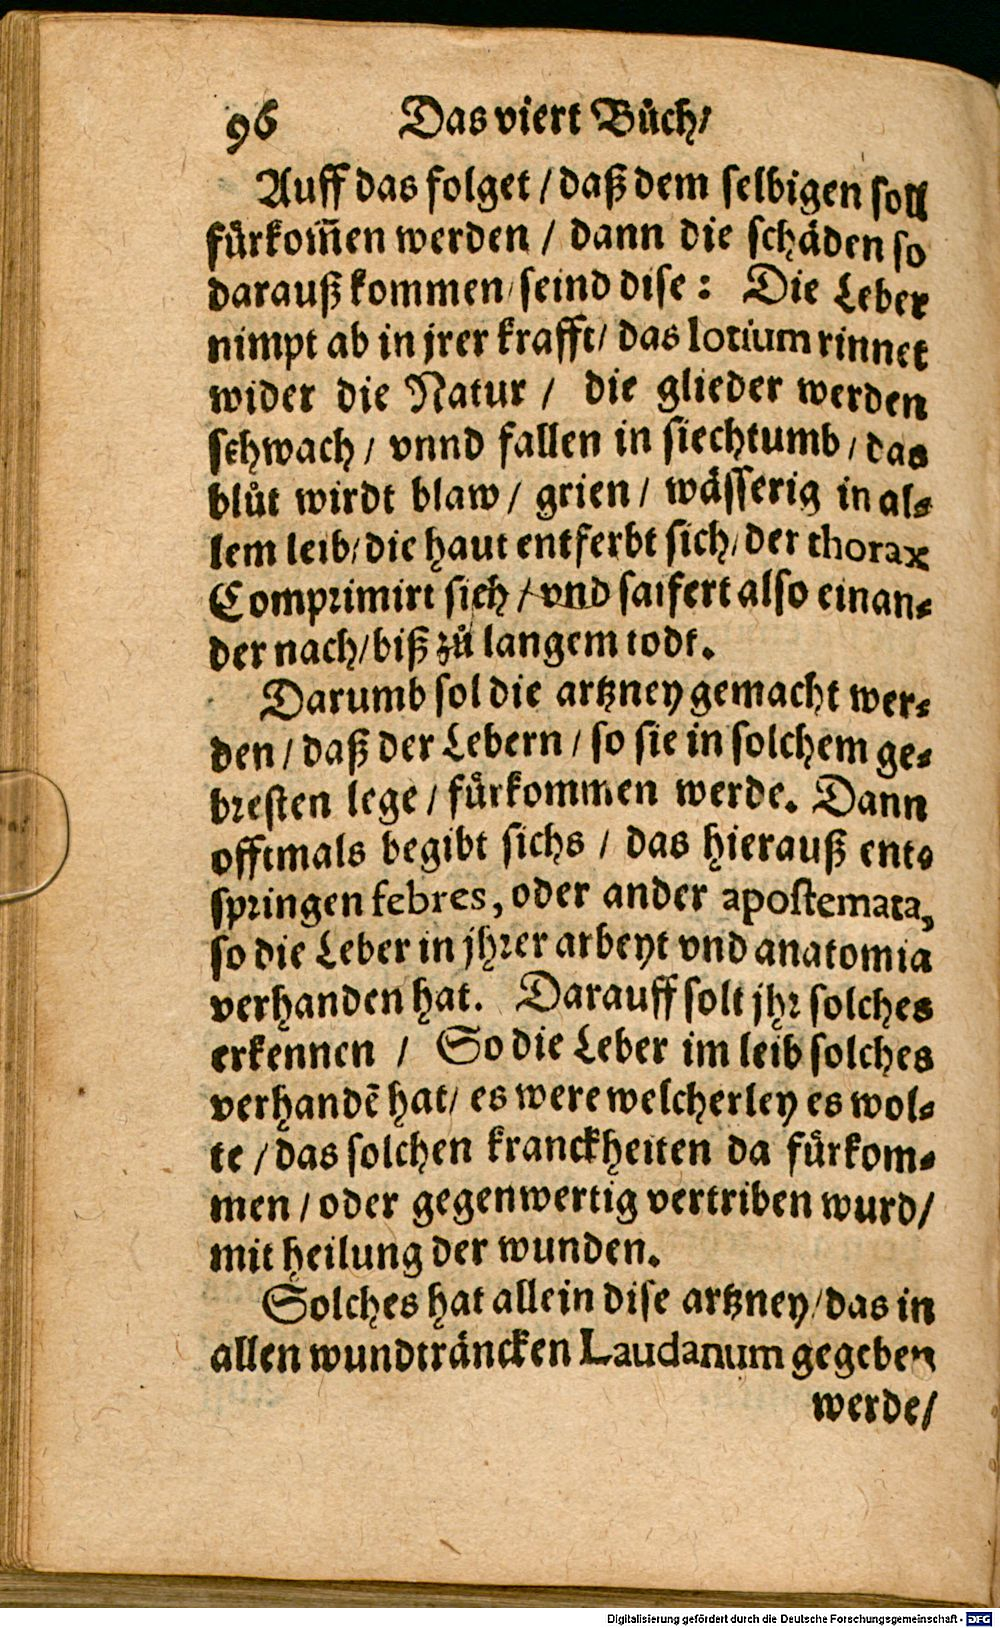 96 Das viert Bůch/
Auff das folget / daß dem selbigen soll
fürkom̃en werden / dann die schäden so
darauß kommen / seind dise: Die Leber
nimpt ab in jrer krafft / das lotium rinnet
wider die Natur / die glieder werden
schwach / vnnd fallen in siechtumb / das
blůt wirdt blaw / grien / wässerig in al⸗
lem leib / die haut entferbt sich / der thorax
Comprimirt sich / vnd saifert also einan⸗
der nach / biß zů langem todt.
Darumb sol die artzney gemacht wer⸗
den / daß der Lebern / so sie in solchem ge⸗
bresten lege / fürkommen werde. Dann
offtmals begibt sichs / das hierauß ent⸗
springen febres, oder ander apostemata,
so die Leber in jhrer arbeyt vnd anatomia
verhanden hat. Darauff solt jhr solches
erkennen / So die Leber im leib solches
verhandẽ hat / es were welcherley es wol⸗
te / das solchen kranckheiten da fürkom⸗
men / oder gegenwertig vertriben wurd /
mit heilung der wunden.
Solches hat allein dise artzney / das in
allen wundträncken Laudanum gegeben
werde /
Digitalisierung gefördert durch die Deutsche Forschungsgemeinschaft - DFG